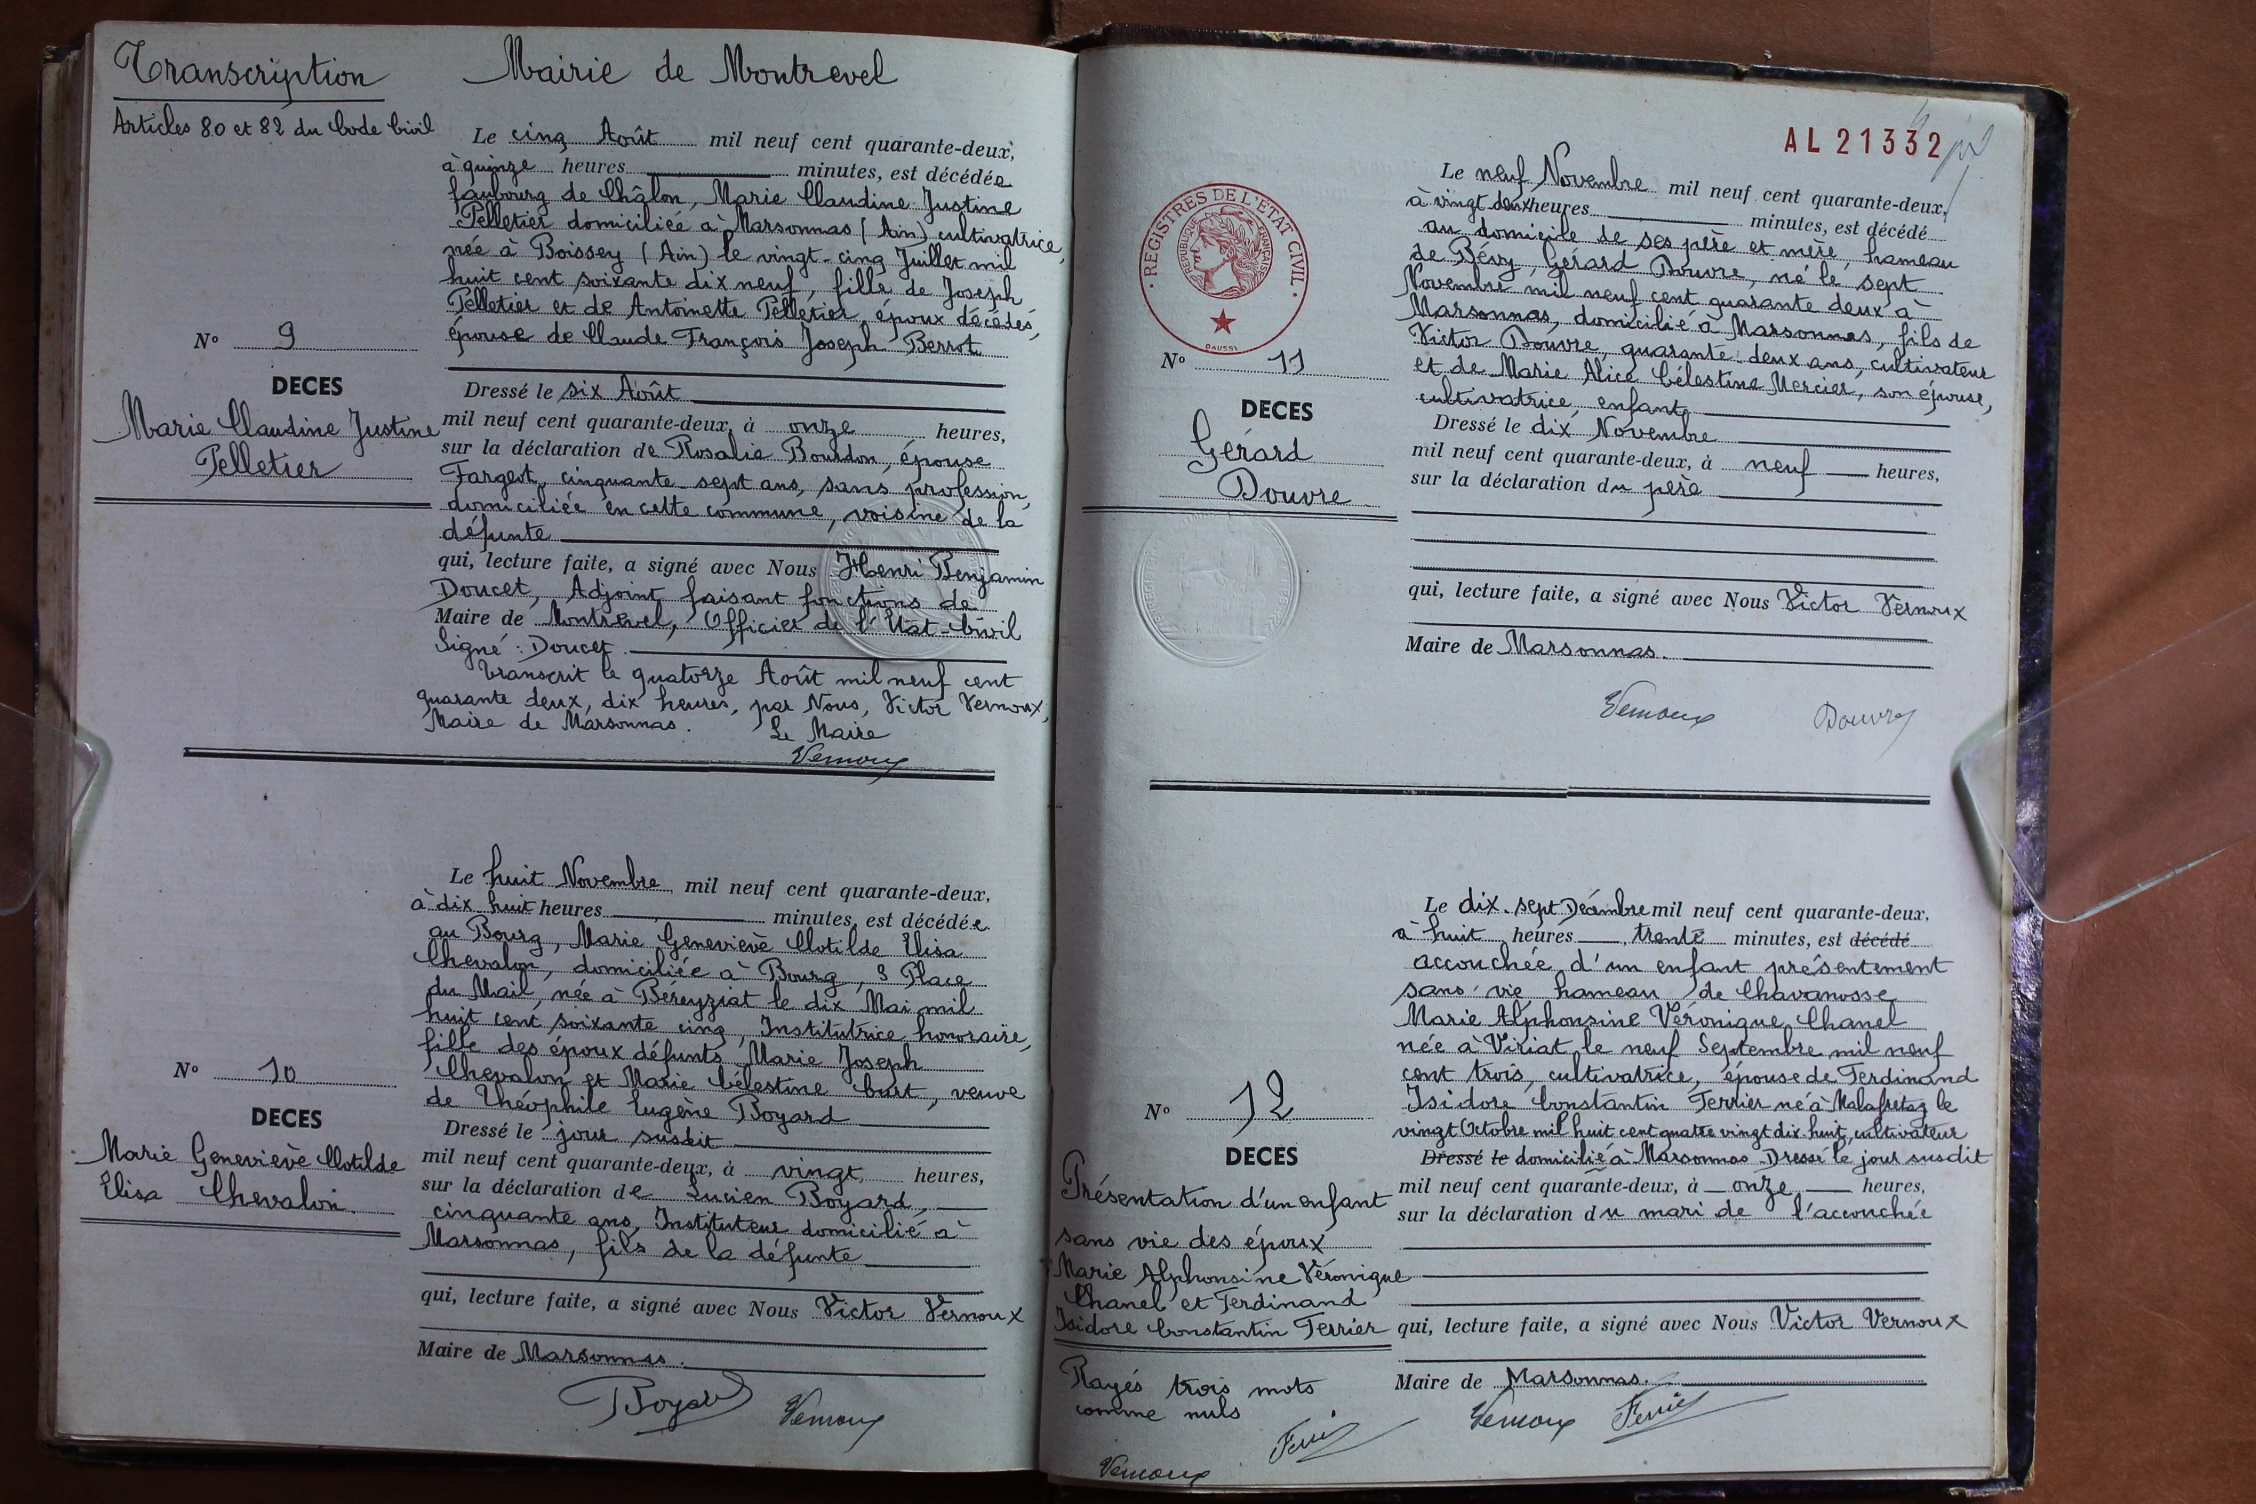 Transcription
Mairie de Montrevel
Articles 80 et 82 du Code Civil
Le cinq Août mil neuf cent quarante-deux,
à quinze heures minutes, est décédée
faubourg de Châlon, Marie Claudine Justine
Pelletier domiciliée à Marsonnas (Ain) cultivatrice,
née à Boissey (Ain) le vingt-cinq Juillet mil
huit cent soixante dix neuf, fille de Joseph
Pelletier et de Antoinette Pelletier, époux décédés,
épouse de Claude François Joseph Berrot
N° 9
DECES
Marie Claudine Justine
Pelletier
Dressé le six Août
mil neuf cent quarante-deux, à onze heures,
sur la déclaration de Rosalie Bourdon, épouse
Fargeot, cinquante-sept ans, sans profession,
domiciliée en cette commune, voisine de la
défunte
qui, lecture faite, a signé avec Nous Henri Benjamin
Doucet, Adjoint faisant fonctions de
Maire de Montrevel, Officier de l'Etat-Civil
Signé : Doucet
Transcrit le quatorze Août mil neuf cent
quarante deux, dix heures, par Nous, Victor Vernoux,
Maire de Marsonnas. Le Maire
Vernoux
Le huit Novembre mil neuf cent quarante-deux,
à dix huit heures minutes, est décédée
au Bourg, Marie Geneviève Clotilde Elisa
Chevalon, domiciliée à Bourg, 3 Place
du Mail, née à Béreyziat le dix Mai mil
huit cent soixante cinq, Institutrice honoraire,
fille des époux défunts Marie Joseph
Chevalon et Marie Célestine Curt, veuve
de Théophile Eugène Boyard
N° 10
DECES
Marie Geneviève Clotilde
Elisa Chevalon.
Dressé le jour susdit
mil neuf cent quarante-deux, à vingt heures,
sur la déclaration de Lucien Boyard,
cinquante ans, Instituteur domicilié à
Marsonnas, fils de la défunte
qui, lecture faite, a signé avec Nous Victor Vernoux
Maire de Marsonnas.
Boyard Vernoux
AL 21332
REGISTRES DE L'ETAT CIVIL
REPUBLIQUE FRANÇAISE
DAUSSI
Le neuf Novembre mil neuf cent quarante-deux,
à vingt deux heures minutes, est décédé
au domicile de ses père et mère, hameau
de Bévy, Gérard Douvre, né le sept
Novembre mil neuf cent quarante deux à
Marsonnas, domicilié à Marsonnas, fils de
Victor Douvre, quarante-deux ans, cultivateur
et de Marie Alice Célestine Mercier, son épouse,
cultivatrice, enfant
N° 11
DECES
Gérard
Douvre
Dressé le dix Novembre
mil neuf cent quarante-deux, à neuf heures,
sur la déclaration du père
qui, lecture faite, a signé avec Nous Victor Vernoux
Maire de Marsonnas.
Vernoux Douvre
Le dix-sept Décembre mil neuf cent quarante-deux,
à huit heures trente minutes, est décédé
accouchée d'un enfant présentement
sans vie hameau de Chavanosse
Marie Alphonsine Véronique Chanel
née à Viriat le neuf Septembre mil neuf
cent trois, cultivatrice, épouse de Ferdinand
Isidore Constantin Terrier né à Malafretaz le
vingt Octobre mil huit cent quatre vingt dix-huit, cultivateur
Dressé le domicilié à Marsonnas Dressé le jour susdit
mil neuf cent quarante-deux, à onze heures,
sur la déclaration du mari de l'accouchée
N° 12
DECES
Présentation d'un enfant
sans vie des époux
Marie Alphonsine Véronique
Chanel et Ferdinand
Isidore Constantin Terrier
qui, lecture faite, a signé avec Nous Victor Vernoux
Maire de Marsonnas.
Rayés trois mots
comme nuls
Vernoux Terrier
Terrier
Vernoux